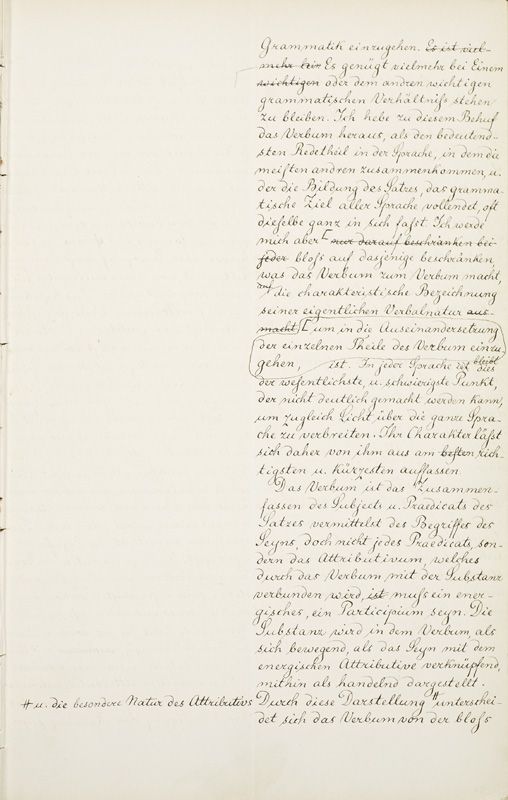 Grammatik einzugehen. Es ist viel-
mehr kein Es genügt vielmehr bei Einem
wichtigen oder dem andren wichtigen
grammatischen Verhältniſs stehen
zu bleiben. Ich hebe zu diesem Behuf
das Verbum heraus, als den bedeutend-
sten Redetheil in der Sprache, in dem die
meisten andren zusammenkommen, u.
der die Bildung des Satzes, das gramma-
tische Ziel aller Sprache vollendet, oft
dieselbe ganz in sich faſst. Ich werde
mich aber [nur darauf beschränken bei
jeder bloſs auf dasjenige beschränken,
was das Verbum zum Verbum macht,
auf die charakteristische Bezeichnung
seiner eigentlichen Verbalnatur aus-
macht [um in die Auseinandersetzung
der einzelnen Theile des Verbum einzu
gehen, ist. In jeder Sprache ist bleibt dies
der wesentlichste, u. schwierigste Punkt,
der nicht deutlich gemacht werden kann,
um zugleich Licht über die ganze Spra-
che zu verbreiten. Ihr Charakter läſst
sich daher von ihm aus am besten rich-
tigsten u. kürzesten auffassen.
Das Verbum ist das Zusammen-
fassen des Subjects u. Praedicats des
Satzes vermittelst des Begriffes des
Seyns, doch nicht jedes Praedicats, son-
dern das Attributivum, welches
durch das Verbum mit der Substanz
verbunden wird, ist muſs ein ener-
gisches, ein Participium seyn. Die
Substanz wird in dem Verbum, als
sich bewegend, als das Seyn mit dem
energischen Attributive verknüpfend,
mithin als handelnd dargestellt.
# u. die besondere Natur des Attributivs Durch diese Darstellung # unterschei-
det sich das Verbum von der bloſs